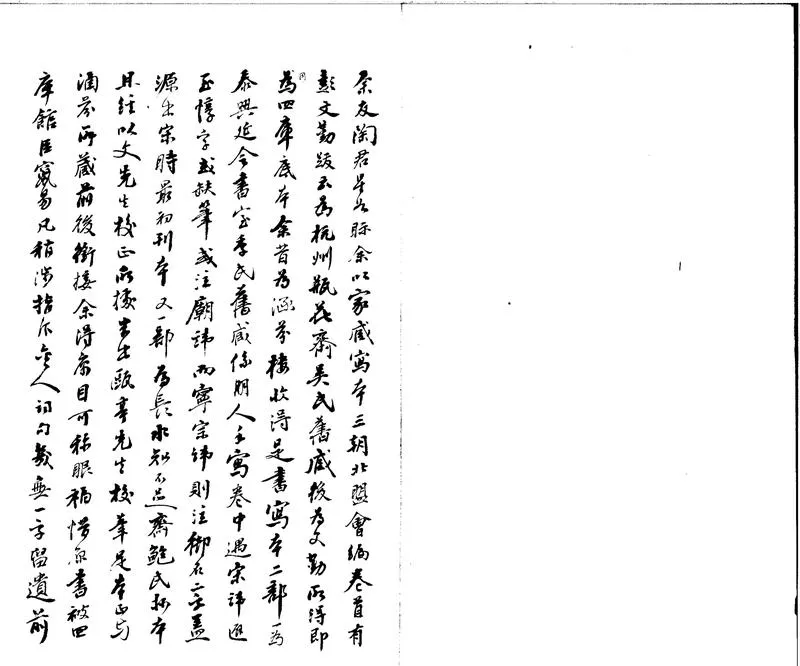 余友陶君星如眎余以家藏寫本三朝北盟會編卷首有
彭文勤跋云為杭州瓶花齋吳氏舊藏後為文勤所得即
為四庫底本余昔為涵芬樓收得是書寫本二部一為
泰興延令書室季氏舊藏係明人手寫卷中遇宋諱匡
至惇字或缺筆或注廟諱而寧宗諱則注御名二字蓋
源出宋時最初刊本又一部為長水知不足齋鮑氏抄本
且經以文先生校正所據半出甌亭先生校筆是本正与
涵芬所藏前後銜接余得寓目可稱眼福惜原書被四
庫館臣竄易凡稍涉指斥金人詞句幾無一字留遺前